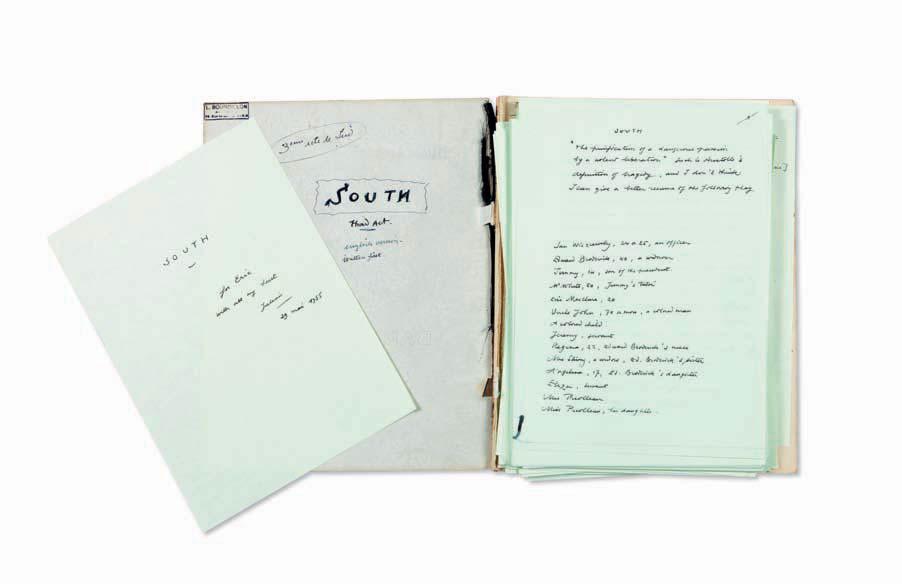 L. BOURDILLON
3eme acte de Sud
SOUTH
Third Act.
english version.
written first
SOUTH
for Eric
with all my heart
Julien
29 mai 1955
SOUTH
"The purification of a dangerous passion
by a violent liberation" Such is Aristotle's
definition of tragedy, and I don't think
I can give a better resume of the following play
Jan Wiczewsky, 24 or 25, an officer
Edward Broderick, 40, a widower
Jimmy, 14, son of the
Mr White, 50, Jimmy's tutor
Eric MacClure, 20
Uncle John, 70 or more, a colored man
A colored child
Jeremy, servant
Regina, 22, Edward Broderick's niece
Mrs Strong, a widow, Ed. Broderick's sister
Angelina, 17, Ed. Broderick's daughter
Eliza, servant
Mrs Priolleau
Miss Priolleau, her daughter.